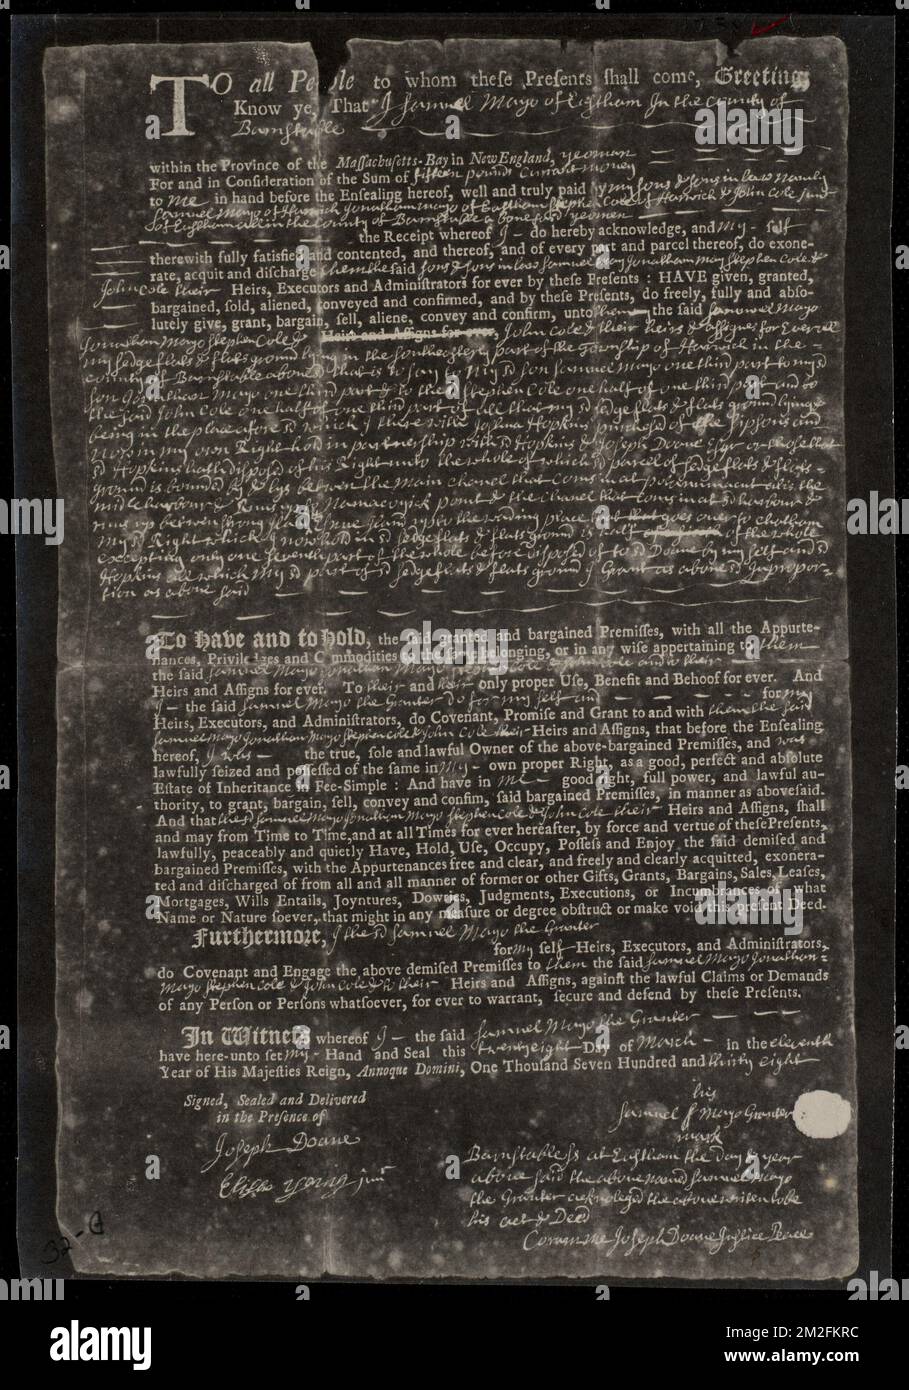 To all People to whom these Presents shall come, Greeting;
Know ye, That I Samuel Mayo of Eastham In the County of
Barnstable
within the Province of the Massachusetts-Bay in New England, yeoman
For and in Consideration of the Sum of fifteen pounds Currant money
to me in hand before the Ensealing hereof, well and truly paid by my sons & sons in law namly
Samuel Mayo of Harwich Jonathan mayo of Eastham Stephen Cole of Harwich & John Cole
of Eastham all in the County of Barnstable abovesaid yeomen
the Receipt whereof I do hereby acknowledge, and my self
therewith fully satisfied and contented, and thereof, and of every part and parcel thereof, do exone-
rate, acquit and discharge them the said sons & sons in law Samuel Mayo Jonathan mayo Stephen Cole &
John Cole their Heirs, Executors and Administrators for ever by these Presents : HAVE given, granted,
bargained, sold, aliened, conveyed and confirmed, and by these Presents, do freely, fully and abso-
lutely give, grant, bargain, sell, aliene, convey and confirm, unto them the said Samuel Mayo
Jonathan Mayo Stephen Cole & Heirs and Assigns for ever, John Cole & their heirs & assignes for Ever all
my sedge flats & flats ground lying in the southeasterly part of the Township of Harwich in the
county of Barnstable abovesd that is to say to my sd son Samuel Mayo one third part to my sd
son Jonathan Mayo one third part & to the sd Stephen Cole one half of one third part and to
the said John Cole one half of one third part of all that my sd sedge flats & flats ground lying &
being in the place aforesd which I there with Joshua Hopkins purchased of the and
now in my own Right hold in partnership with sd Hopkins & Joseph Doane Esqr or those that
sd Hopkins hath disposed of his Right unto the whole of which sd parcel of sedge flats & flats
ground is bounded by & lys between the Main chanel that coms in at till the
midle harbour & Runs up to point & the Chanel that coms in at sd harbour &
runs up between strong Island & up to the wading place that goes over to Chatham
my sd Right which I now hold in sd sedge flats & flats ground is half of the whole
excepting only one seventh part of the whole before disposed of to sd Doane by my self and sd
Hopkins all which my sd part of sd sedge flats & flats ground I Grant as abovesd In propor-
tion as above said
To Have and to hold, the said granted and bargained Premisses, with all the Appurte-
nances, Priviledges and Commodities to the same belonging, or in any wise appertaining to them
the said Samuel Mayo Jonathan Mayo Stephen Cole & John Cole and to their
Heirs and Assigns for ever. To their and their only proper Use, Benefit and Behoof for ever. And
I the said Samuel Mayo the Granter do for my self and for my
Heirs, Executors, and Administrators, do Covenant, Promise and Grant to and with them the said
Samuel Mayo Jonathan Mayo Stephen Cole & John Cole their Heirs and Assigns, that before the Ensealing
hereof, I was the true, sole and lawful Owner of the above-bargained Premisses, and was
lawfully seized and possessed of the same in my own proper Right, as a good, perfect and absolute
Estate of Inheritance in Fee-Simple : And have in me good right, full power, and lawful au-
thority, to grant, bargain, sell, convey and confim, said bargained Premisses, in manner as abovesaid.
And that the sd Samuel Mayo Jonathan Mayo Stephen Cole & John Cole their Heirs and Assigns, shall
and may from Time to Time, and at all Times for ever hereafter, by force and vertue of these Presents,
lawfully, peaceably and quietly Have, Hold, Use, Occupy, Possess and Enjoy the said demised and
bargained Premisses, with the Appurtenances free and clear, and freely and clearly acquitted, exonera-
ted and discharged of from all and all manner of former or other Gifts, Grants, Bargains, Sales, Leases,
Mortgages, Wills Entails, Joyntures, Dowries, Judgments, Executions, or Incumbrances of what
Name or Nature soever, that might in any measure or degree obstruct or make void this present Deed.
Furthermore, I the sd Samuel Mayo the Granter
for my self Heirs, Executors, and Administrators,
do Covenant and Engage the above demised Premisses to them the said Samuel Mayo Jonathan
Mayo Stephen Cole & John Cole & to their Heirs and Assigns, against the lawful Claims or Demands
of any Person or Persons whatsoever, for ever to warrant, secure and defend by these Presents.
In Witness whereof I the said Samuel Mayo the Granter
have here-unto set my Hand and Seal this twenty eight Day of March in the eleventh
Year of His Majesties Reign, Annoque Domini, One Thousand Seven Hundred and thirty eight
Signed, Sealed and Delivered
in the Presence of
his
Samuel Mayo Granter
mark
Joseph Doane
Barnstable ss at Eastham the day & year
above said the above named Samuel Mayo
the Granter acknoleged the above written to be
his act & Deed
Coram me Joseph Doane Justice Peace
32-C
alamy
Image ID: 2M2FKRC
www.alamy.com